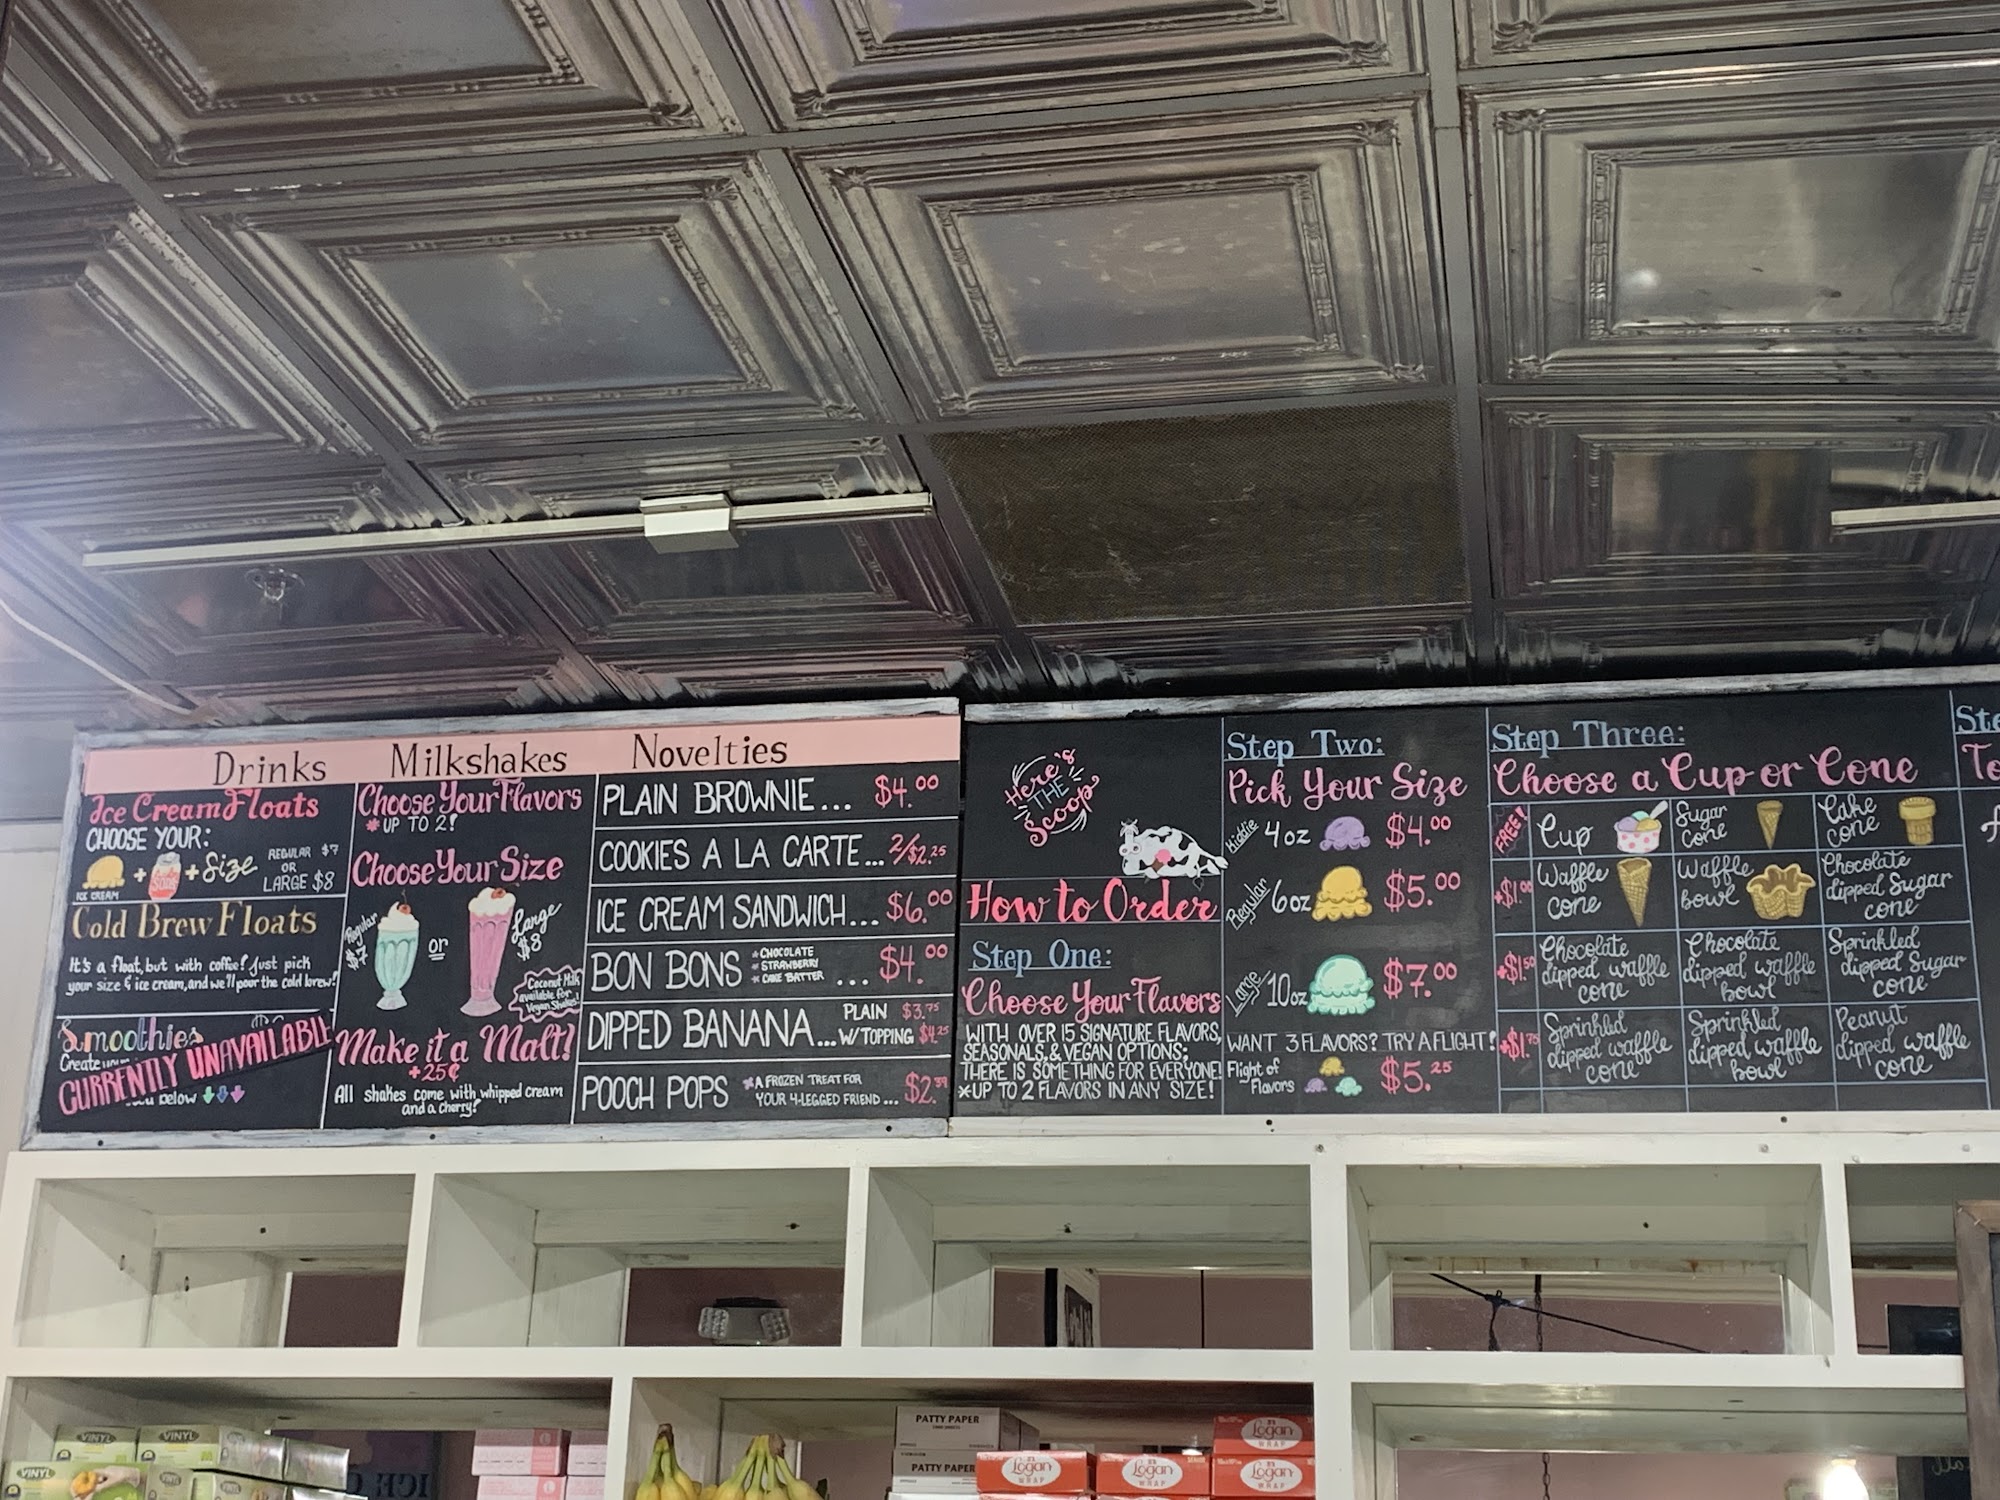 Drinks
Milkshakes
Novelties
Ice Cream Floats
CHOOSE YOUR:
ICE CREAM
+
SODA
+ Size
REGULAR $7
OR
LARGE $8
Cold Brew Floats
It's a float, but with coffee! Just pick
your size & ice cream, and we'll pour the cold brew!
Smoothies
Create your
CURRENTLY UNAVAILABLE
below
Choose Your Flavors
*UP TO 2!
Choose Your Size
Regular
$7
or
Large
$8
Coconut Milk
available for
Vegan Shakes!
Make it a Malt!
+25¢
All shakes come with whipped cream
and a cherry!
PLAIN BROWNIE... $4.00
COOKIES A LA CARTE... 2/$2.25
ICE CREAM SANDWICH... $6.00
BON BONS *CHOCOLATE
*STRAWBERRY
*CAKE BATTER ... $4.00
DIPPED BANANA... PLAIN $3.75
W/TOPPING $4.25
POOCH POPS *A FROZEN TREAT FOR
YOUR 4-LEGGED FRIEND... $2.39
Here's
THE
Scoop
How to Order
Step One:
Choose Your Flavors
WITH OVER 15 SIGNATURE FLAVORS,
SEASONALS, & VEGAN OPTIONS;
THERE IS SOMETHING FOR EVERYONE!
*UP TO 2 FLAVORS IN ANY SIZE!
Step Two:
Pick Your Size
Kiddie 4oz $4.00
Regular 6oz $5.00
Large 10oz $7.00
WANT 3 FLAVORS? TRY A FLIGHT!
Flight of
Flavors
$5.25
Step Three:
Choose a Cup or Cone
FREE!
Cup
Sugar
cone
Cake
cone
+$1.00
Waffle
cone
Waffle
bowl
Chocolate
dipped Sugar
cone
+$1.50
Chocolate
dipped waffle
cone
Chocolate
dipped waffle
bowl
Sprinkled
dipped Sugar
cone
+$1.75
Sprinkled
dipped waffle
cone
Sprinkled
dipped waffle
bowl
Peanut
dipped waffle
cone
Ste
To
VINYL
VINYL
VINYL
VINYL
VINYL
PATTY PAPER
PATTY PAPER
Logan
WRAP
Logan
WRAP
Logan
WRAP
Logan
WRAP